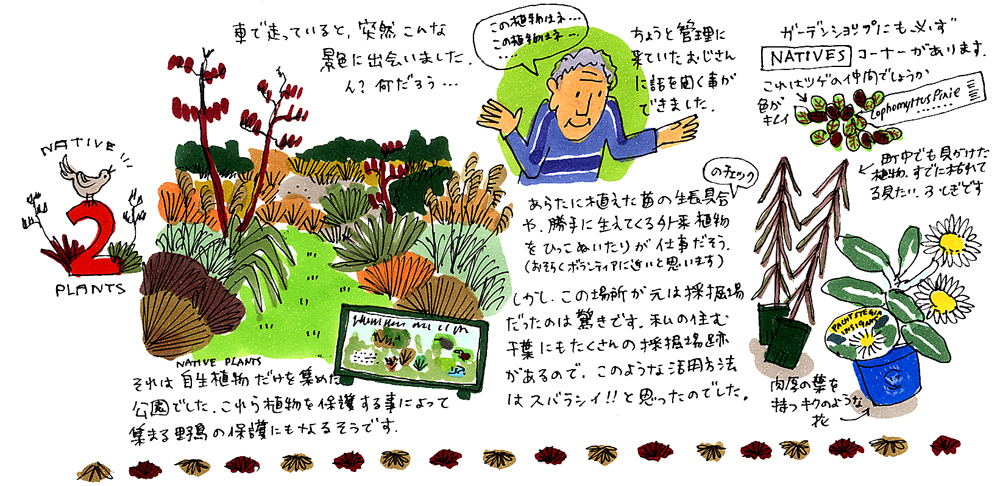 NATIVE
2
PLANTS
車で走っていると、突然こんな
景色に出会いました.
ん?何だろう…
NATIVE PLANTS
それは自生植物だけを集めた
公園でした.これら植物を保護する事によって
集まる野鳥の保護にもなるそうです.
この植物はネ…
この植物はネ…
ちょうど管理に
来ていたおじさん
に話を聞く事が
できました.
のチェック
あらたに植えた苗の生長具合
や、勝手に生えてくる外来植物
をひっこぬいたりが仕事だそう.
(おそらくボランティアに近いと思います)
しかし、この場所が元は採掘場
だったのは驚きです.私の住む
千葉にもたくさんの採掘場跡
があるので、このような活用方法
はスバラシイ!!と思ったのでした。
ガーデンショップにも必ず
NATIVES コーナーがあります.
これはツゲの仲間でしょうか
色が
キレイ
Lophomyrtus Pixie
町中でも見かけた
植物、すでに枯れて
る見たい.ふしぎです
PACHYSTEGIA
INSIGNIS
肉厚の葉を
持つキクのような
花